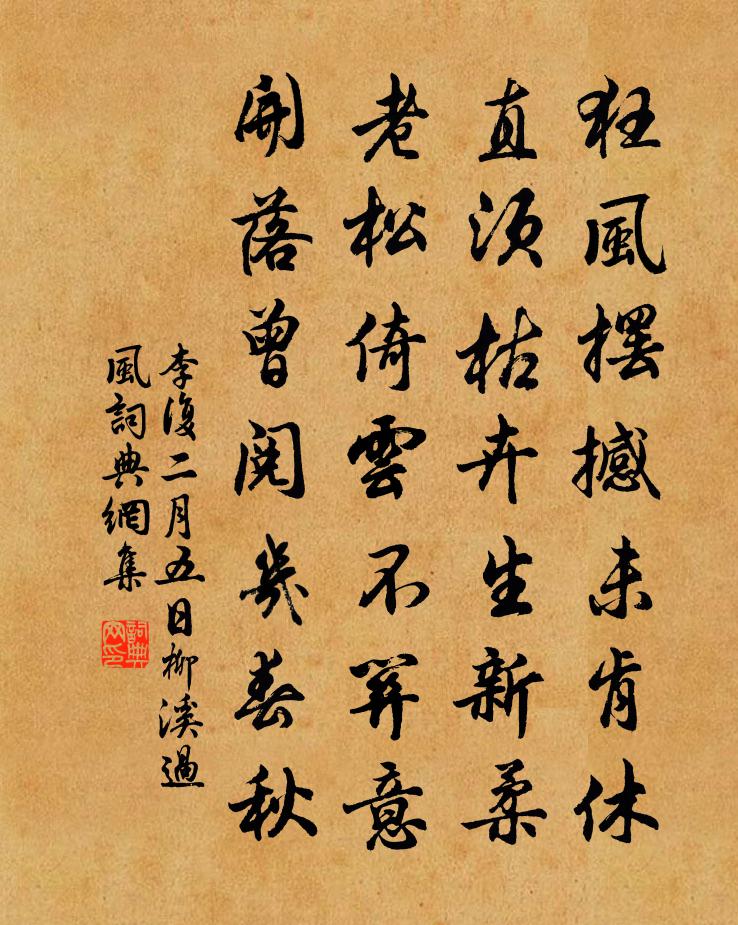 狂風擺撼未肯休
直須枯卉生新柔
老松倚雲不筭意
開落曾閱幾春秋
李復二月五日柳溪過
風詞典網集
詞典
网印